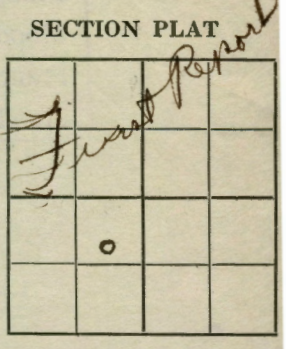 SECTION PLAT
First Report